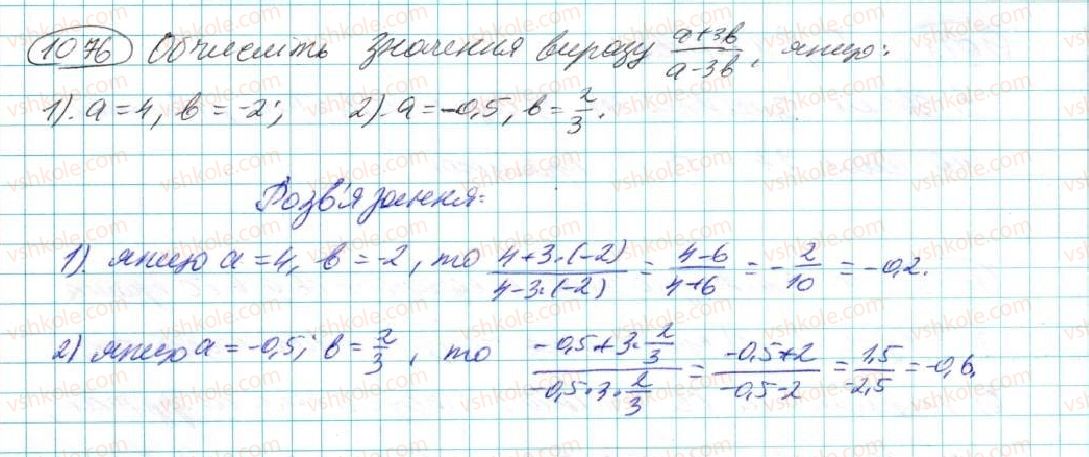 1076 Обчисліть значення виразу (a+3b)/(a-3b), якщо:
1). a=4, b=-2; 2). a=-0,5, b=2/3.
Розв'язання:
1). якщо a=4, b=-2, то (4+3·(-2))/(4-3·(-2)) = (4-6)/(4+6) = -2/10 = -0,2.
2) якщо a=-0,5; b=2/3, то (-0,5+3·2/3)/(-0,5·3·2/3) = (-0,5+2)/(-0,5-2) = 1,5/-2,5 = -0,6.